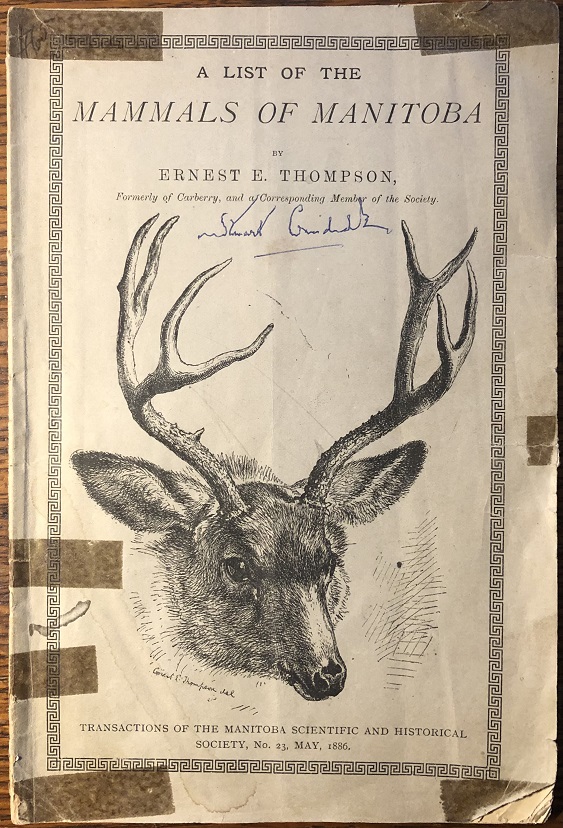 A LIST OF THE
MAMMALS OF MANITOBA
BY
ERNEST E. THOMPSON,
Formerly of Carberry, and a Corresponding Member of the Society.
Stuart Criddle
Ernest E. Thompson del
TRANSACTIONS OF THE MANITOBA SCIENTIFIC AND HISTORICAL
SOCIETY, No. 23, MAY, 1886.